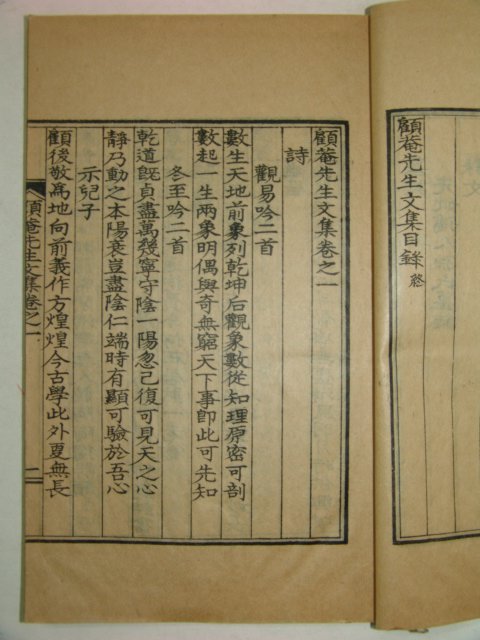 顧菴先生文集目錄 終
顧菴先生文集卷之一
詩
觀易吟二首
數生天地前象列乾坤后觀象數從知理原密可剖
數起一生兩象明偶與奇無窮天下事卽此可先知
冬至吟二首
乾道旣自盡萬幾寧守陰一陽忽已復可見天之心
靜乃動之本陽衰豈盡陰仁端時有顯可驗於吾心
示兒子
顧後敬爲地向前義作方煌煌今古學此外夏無長
顧菴先生文集卷之一
二